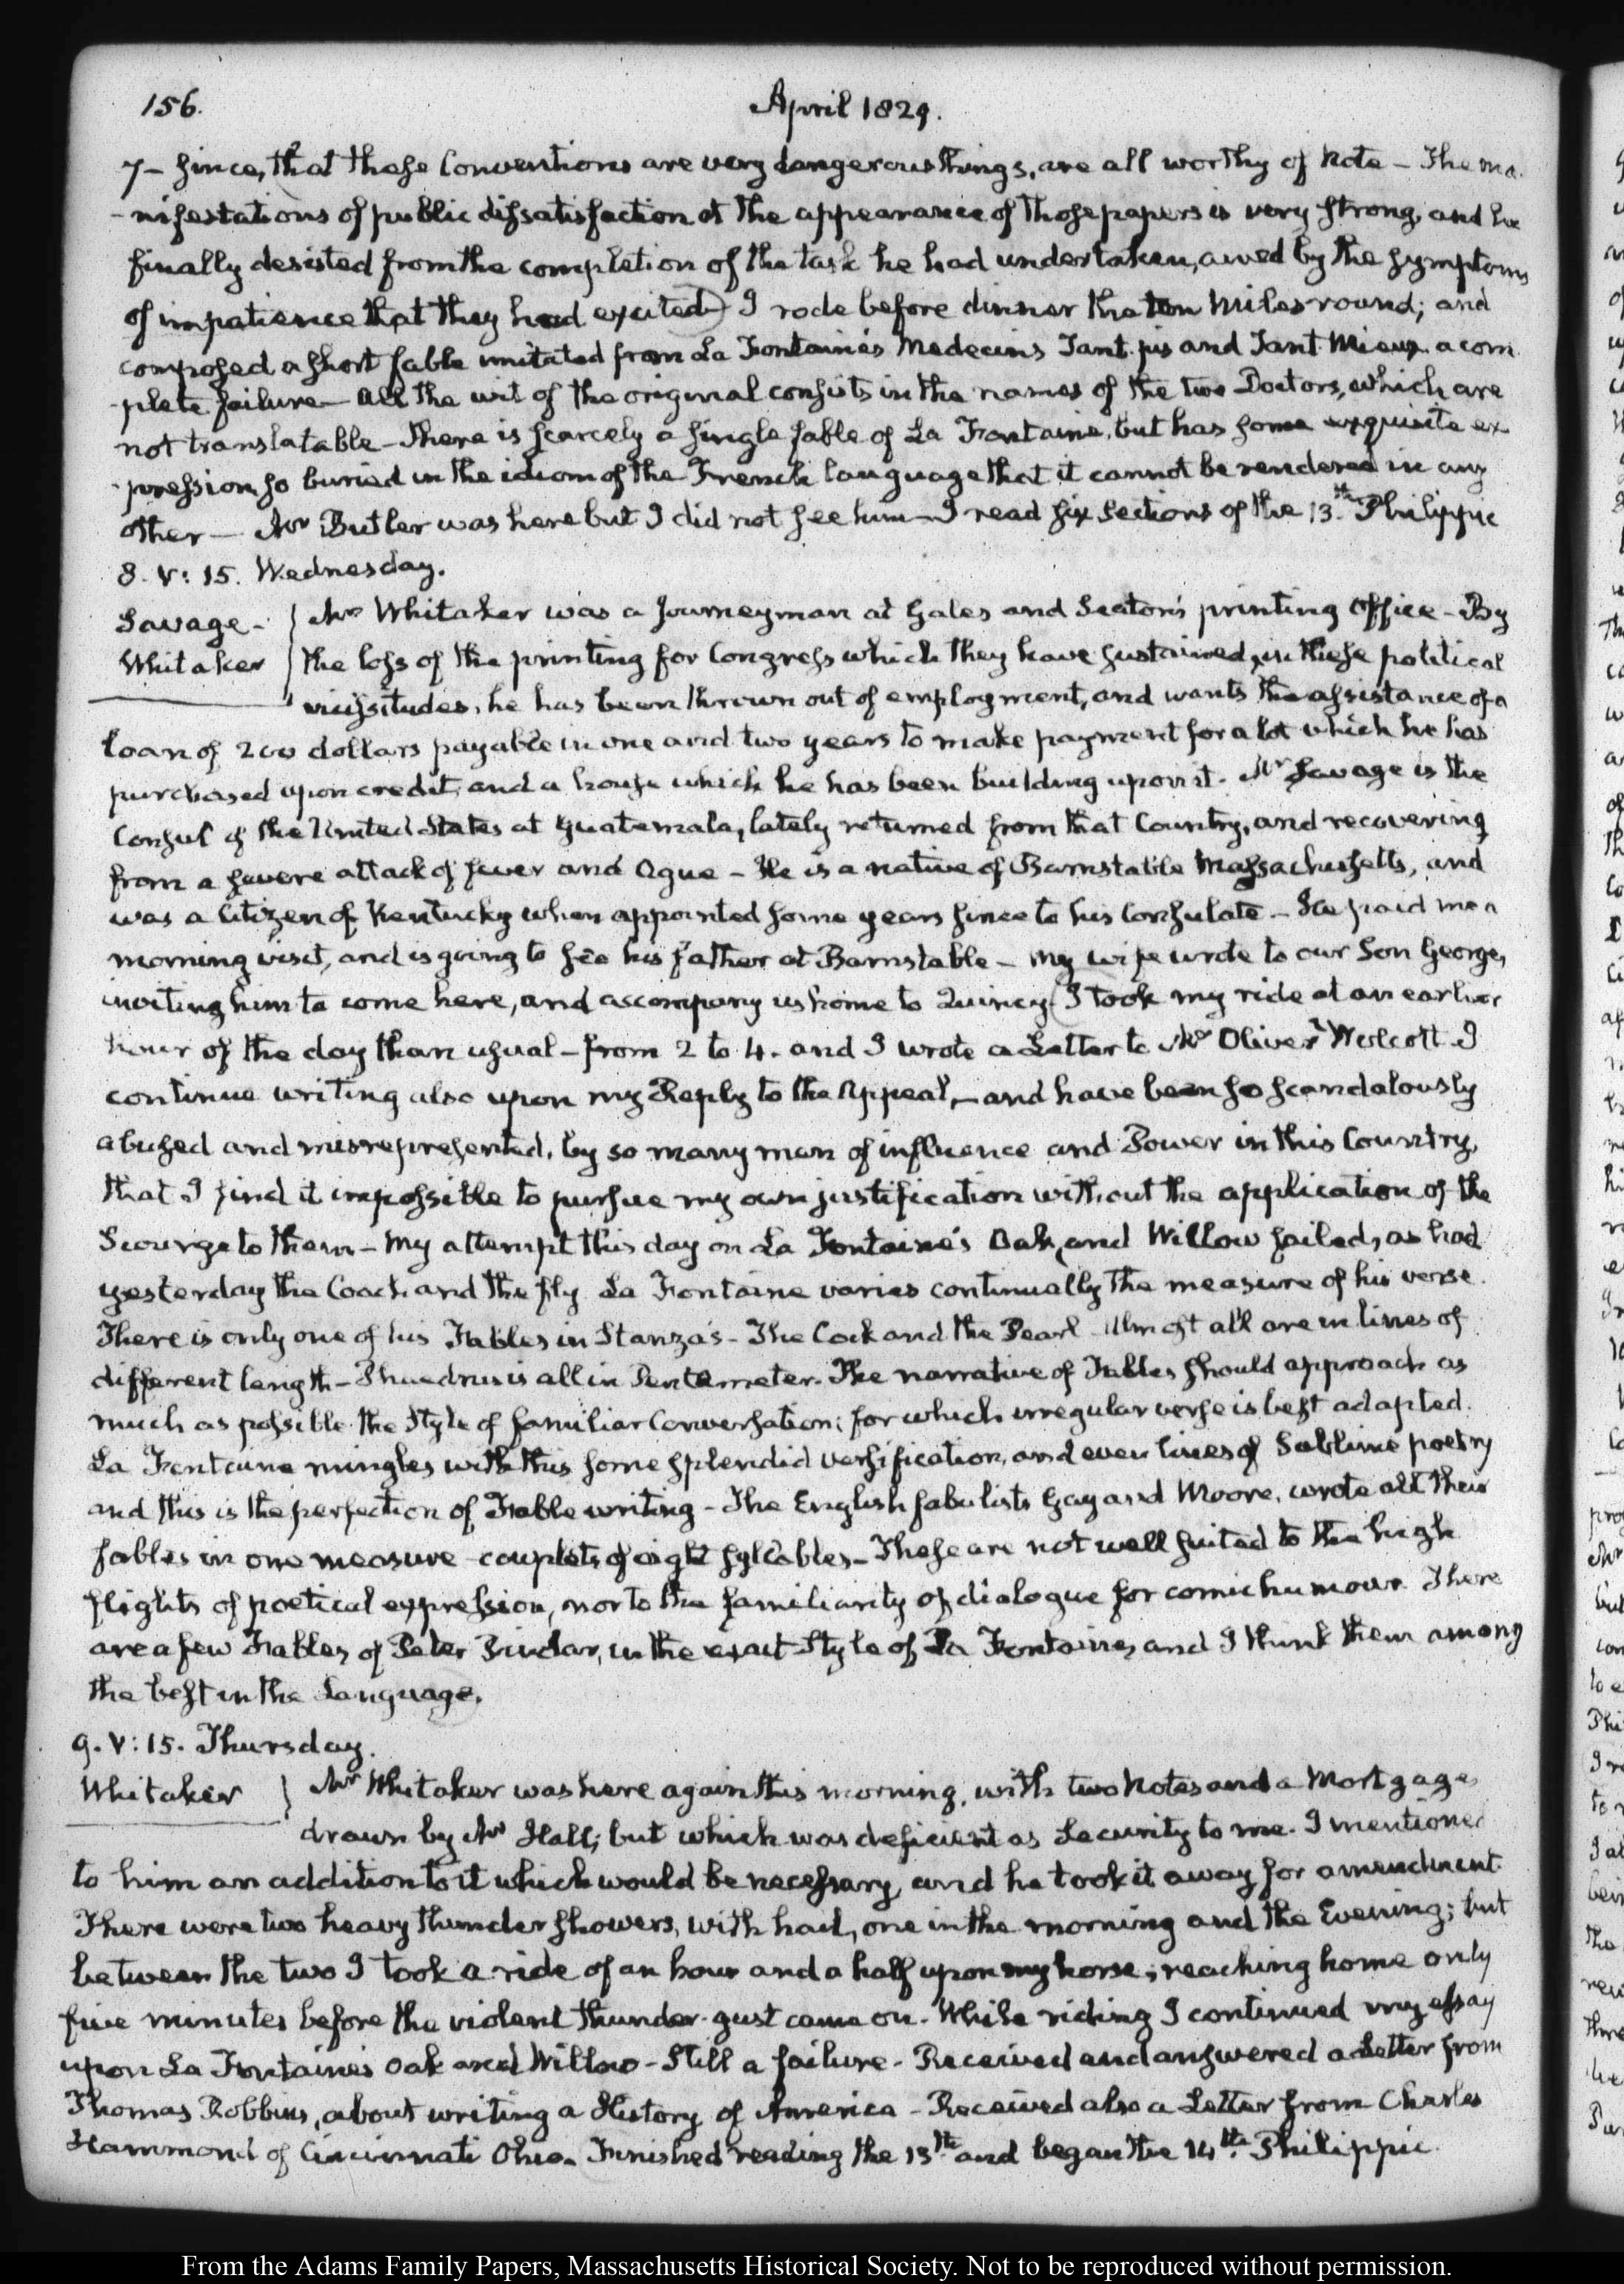 156.
April 1829.
7 – since, that these Conventions are very dangerous things, are all worthy of note – The ma-
-nifestations of public dissatisfaction at the appearance of those papers is very strong, and he
finally desisted from the completion of the task he had undertaken, awed by the symptoms
of impatience that they had excited) I rode before dinner the ten miles round; and
composed a short fable imitated from La Fontaine's Medecins Tant pis and Tant Mieux a com
-plete failure – All the wit of the original consists in the names of the two Doctors, which are
not translatable – There is scarcely a single fable of La Fontaine, but has some exquisite ex-
-pression so buried in the idiom of the French language that it cannot be rendered in any
other – Mr Butler was here but I did not see him – I read six sections of the 13.th Philippic
8. V: 15. Wednesday.
Savage – Mr Whitaker was a Journeyman at Gales and Seaton's printing Office – By
Whitaker the loss of the printing for Congress which they have sustained, in these political
vicissitudes, he has been thrown out of employment, and wants the assistance of a
loan of 200 dollars payable in one and two years to make payment for a lot which he has
purchased upon credit, and a house which he has been building upon it. Mr Savage is the
Consul of the United States at Guatemala, lately returned from that Country, and recovering
from a severe attack of fever and Ague – He is a native of Barnstable Massachusetts, and
was a Citizen of Kentucky when appointed some years since to his Consulate – He paid me a
morning visit, and is going to see his father at Barnstable – My wife wrote to our Son George,
inviting him to come here, and accompany us home to Quincy. (I took my ride at an earlier
hour of the day than usual – from 2 to 4. and I wrote a Letter to Mr Oliver Wolcott I
continue writing also upon my Reply to the Appeal, – and have been so scandalously
abused and misrepresented, by so many men of influence and Power in this Country,
that I find it impossible to pursue my own justification without the application of the
Scourge to them – My attempt this day on La Fontaine's Oak, and Willow failed, as had
yesterday the Coach and the fly La Fontaine varies continually the measure of his verse.
There is only one of his Fables in Stanza's – The Cock and the Pearl – Almost all are in lines of
different length – Phaedrus is all in Pentameter. The narrative of Fables should approach as
much as possible the Style of familiar Conversation; for which irregular verse is best adapted.
La Fontaine mingles with this some splendid versification, and even lines of Sublime poetry
and this is the perfection of Fable writing – The English fabulists Gay and Moore, wrote all their
fables in one measure – couplets of eight syllables – These are not well suited to the high
flights of poetical expression, nor to the familiarity of dialogue for comic humour. There
are a few Fables of Peter Pindar, in the exact Style of La Fontaines and I think them among
the best in the Language.
9. V: 15. Thursday.
Whitaker Mr Whitaker was here again this morning, with two Notes and a Mortgage
drawn by Mr Hall; but which was deficient as Security to me. I mentioned
to him an addition to it which would be necessary, and he took it away for amendment.
There were two heavy thunder showers, with hail, one in the morning and the Evening; but
between the two I took a ride of an hour and a half upon my horse; reaching home only
five minutes before the violent thunder-gust came on. While riding I continued my essay
upon La Fontaine's Oak and Willow – Still a failure – Received and answered a Letter from
Thomas Robbins, about writing a History of America – Received also a Letter from Charles
Hammond of Cincinnati Ohio. Finished reading the 13th and began the 14th Philippic.
From the Adams Family Papers, Massachusetts Historical Society. Not to be reproduced without permission.